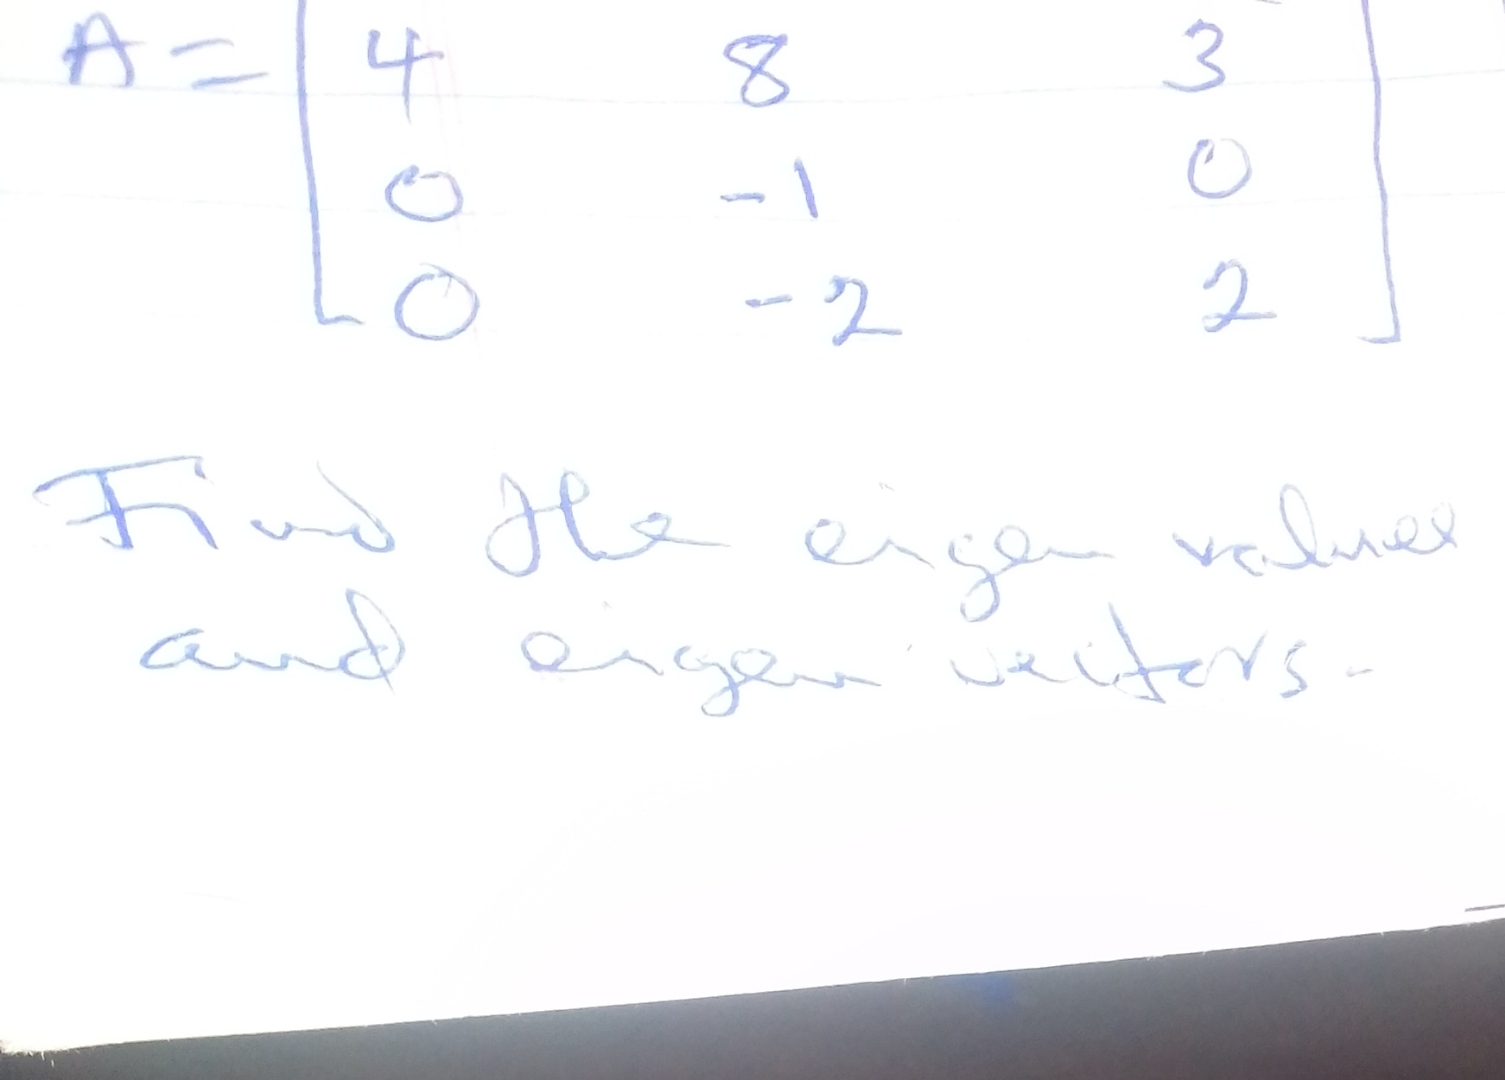 A = 4 8 3
0 -1 0
0 -2 2
Find the eigen values
and eigen vectors.